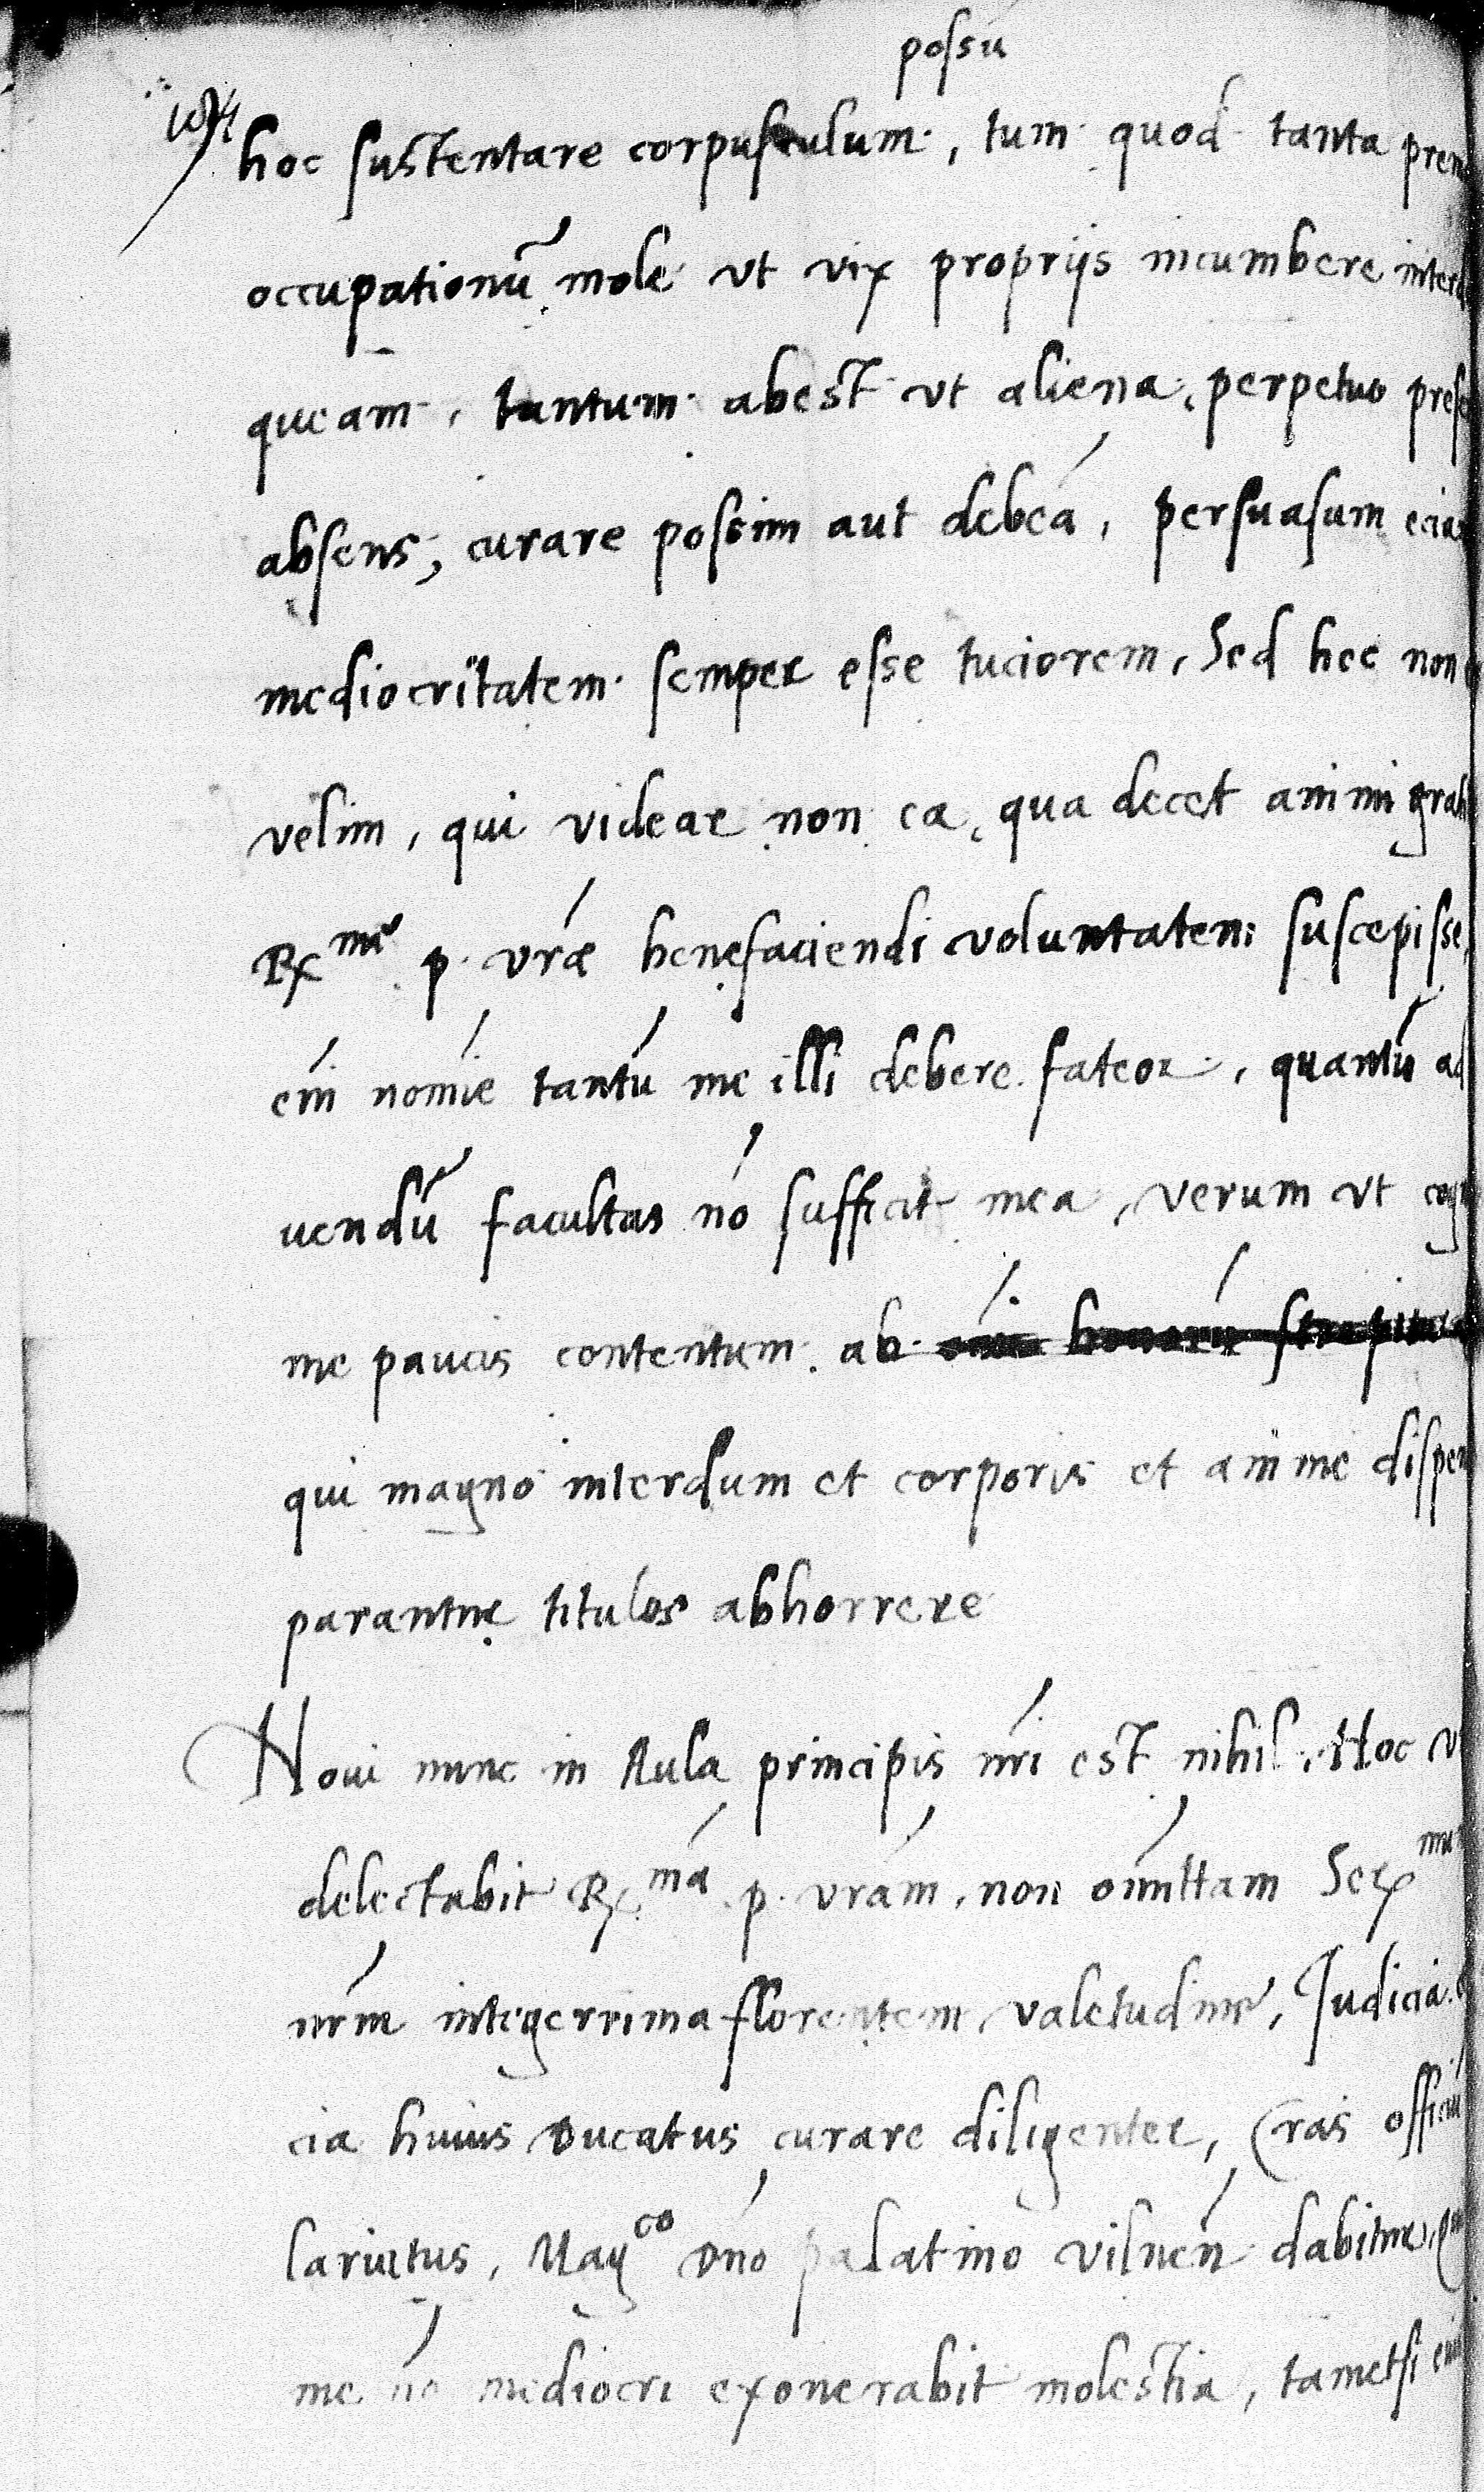 possu
hoc sustentare corpusculum, tum quod tanta prem
occupationū mole ut vix proprijs incumbere inter
queam, tantum abest ut aliena, perpetuo prese
absens, curare possim aut debeā, persuasum ecia
mediocritatem semper esse tuciorem, Sed hec non
velim, qui videar non ea, qua decet animi grati
Rx^me p. vr̄ae benefaciendi voluntatem suscepisse,
em̄ nom̄ie tantū me illi debere fateor, quantū ad
uendū facultas nō sufficit mea, verum ut cog
me paucis contentum ab om̄i honorū strepitu
qui magno interdum et corporis et anime dispen
parantur titulos abhorrere
Noui nunc in Aula principis nr̄i est nihil. Hoc v
delectabit Rx^ma p. vr̄am, non omittam Ser^mu
nr̄m integerrima florentem valetudine, Judicia
cia huius Ducatus curare diligenter, Cras offici
lariatus, Mag^co Dn̄o palatino vilnen̄ dabitur,
me nō mediocri exonerabit molestia, tametsi